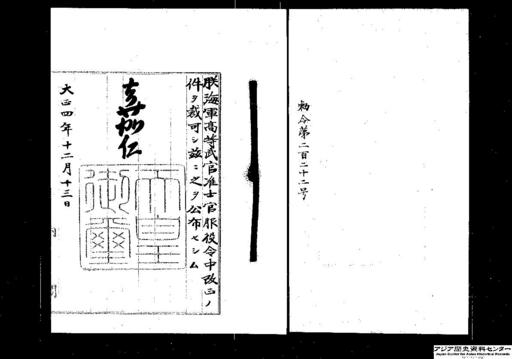 勅令第二百二十二号
朕海軍高等武官准士官服役令中改正ノ
件ヲ裁可シ茲ニ之ヲ公布セシム
嘉仁
天皇
御璽
大正四年十二月十三日
内閣
アジア歴史資料センター
Japan Center for Asian Historical Records